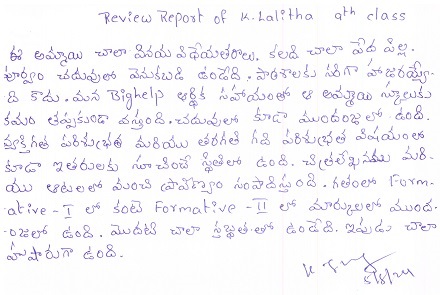 Review Report of K. Lalitha 9th class
ఈ అమ్మాయి చాలా వినయ విధేయతరాలు. కలది చాలా పేద పిల్ల.
పూర్వం చదువులో వెనుకబడి ఉండేది. పాఠశాలకు సరిగా హాజరయ్యే-
ది కాదు. మన Bighelp ఆర్థిక సహాయంతో ఆ అమ్మాయి స్కూలుకు
క్రమం తప్పకుండా వస్తుంది. చదువులో కూడా ముందంజలో ఉంది.
వ్యక్తిగత పరిశుభ్రత మరియు తరగతి గది పరిశుభ్రత విషయంలో
కూడా ఇతరులకు సూచించే స్థితిలో ఉంది. చిత్రలేఖనము మరి-
యు ఆటలలో మంచి ప్రావీణ్యం సంపాదిస్తుంది. గతంలో Form-
ative - I లో కంటె Formative - II లో మార్కులలో ముంద-
ంజలో ఉంది. మొదటి చాలా స్తబ్ధత-తో ఉండేది. ఇపుడు చాలా
హుషారుగా ఉంది.